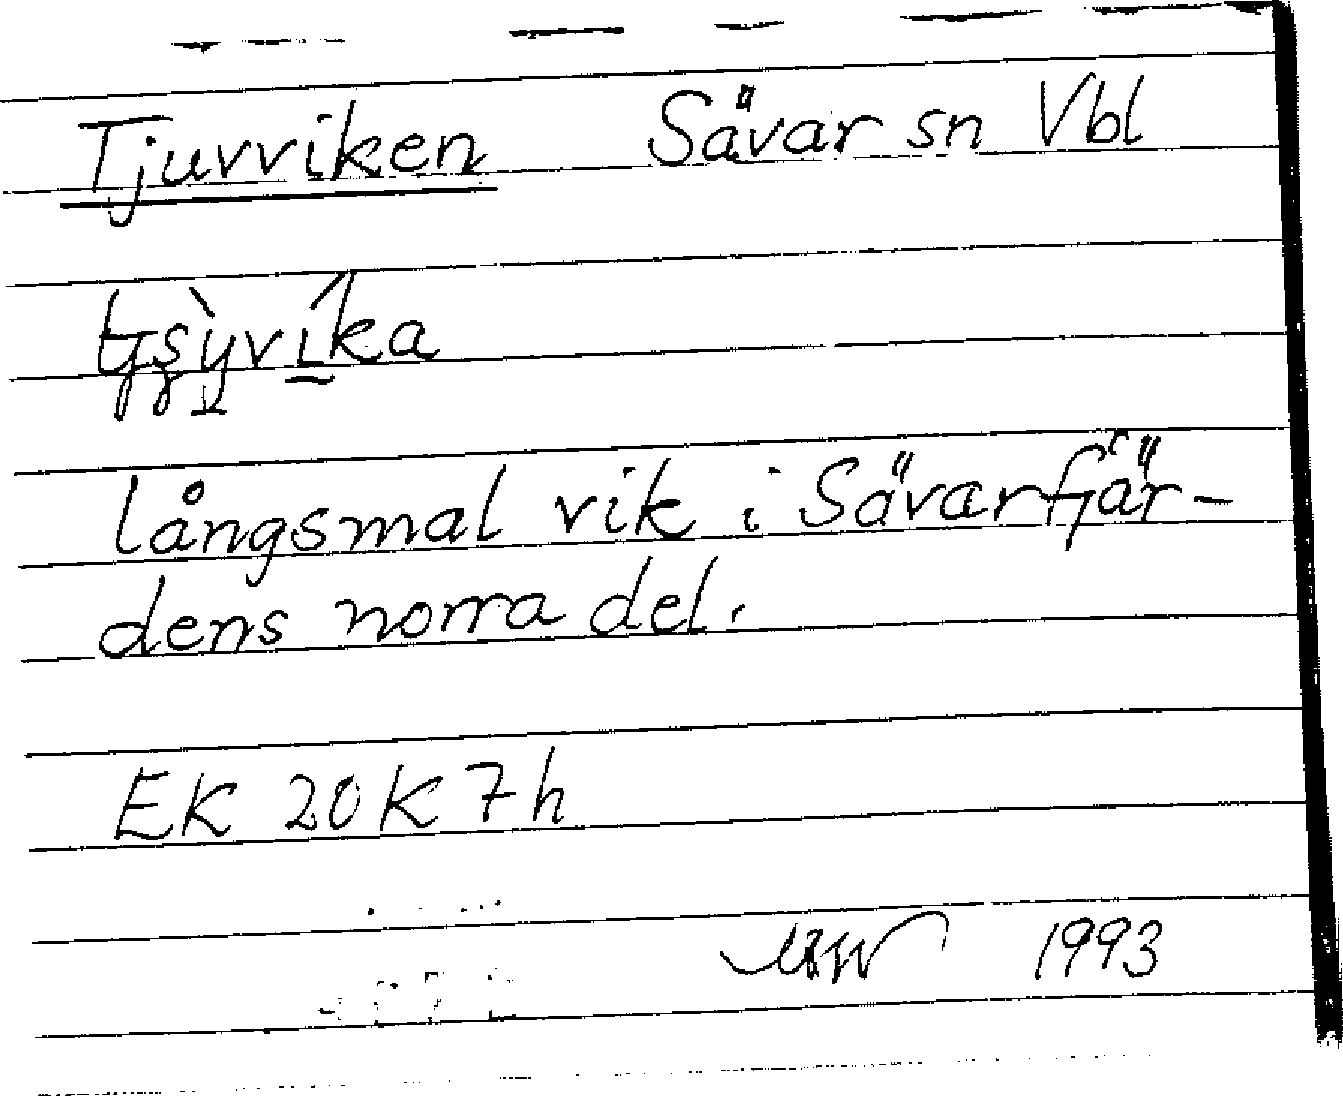 Tjuvviken Sävar sn Vbl
långsmal vik i Sävarfjär-
dens norra del.
EK 20K 7h
1993